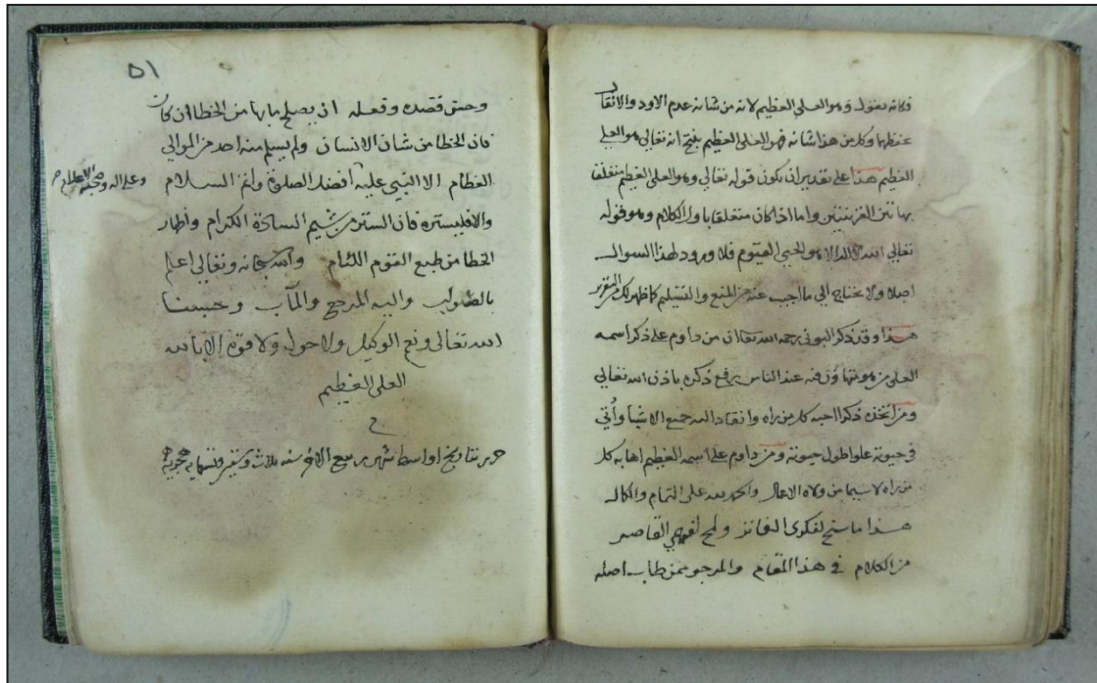 فكانه يقول وهو العلي العظيم لانه من شانه عدم الاود والاثقال
بحفظهما وكل من هذا شانه فهو العلي العظيم ينتج انه تعالى هو العلي
العظيم هذا على تقدير ان يكون قوله تعالى وهو العلي العظيم متعلقا
بهاتين القرينتين واما اذا كان متعلقا باول الكلام وهو قوله
تعالى الله لا اله الا هو الحي القيوم فلا ورود لهذا السوال
اصلا ولا يحتاج الى ما اجيب عنه من المنع والتسليم كما ظهر لك من التقرير
هذا وقد ذكر البوني رحمه الله تعالى ان من داوم على ذكر اسمه
العلي من عند الناس يرفع ذكره باذن الله تعالى
ومن اتخذه ذكرا احبه كل من يراه وانقاد اليه جميع الاشيا وأتي
في حيوته علوا طول حيوته ومن داوم على اسمه العظيم اهابه كل
من يراه لا سيما من ولاه الاعمال والحمد لله على التمام والكمال
هذا ما سنح لفكري الفاتر ولمح لفهمي القاصر
من الكلام في هذا المقام والمرجو ممن طاب اصله
٥١
وحسن قصده وفعله ان يصلح ما بها من الخطا ان كان
فان الخطا من شان الانسان ولم يسلم منه احد من الموالي
العظام الا النبي عليه أفضل الصلوة واتم السلام
وعلى اله وصحبه الاعلام
والا فليستره فان الستر من شيم السادة الكرام واظهار
الخطا من طبع القوم اللئام والله سبحانه وتعالى اعلم
بالصواب واليه المرجع والمآب وحسبنا
الله تعالى ونعم الوكيل ولا حول ولا قوة الا بالله
العلي العظيم
حرر بتاريخ اواسط شهر ربيع الاخر سنه ثلاث